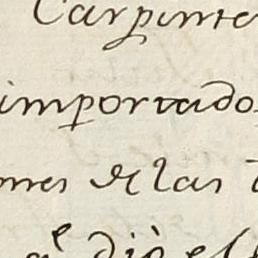 Carpinte
importado
ones de las
qe. dió el